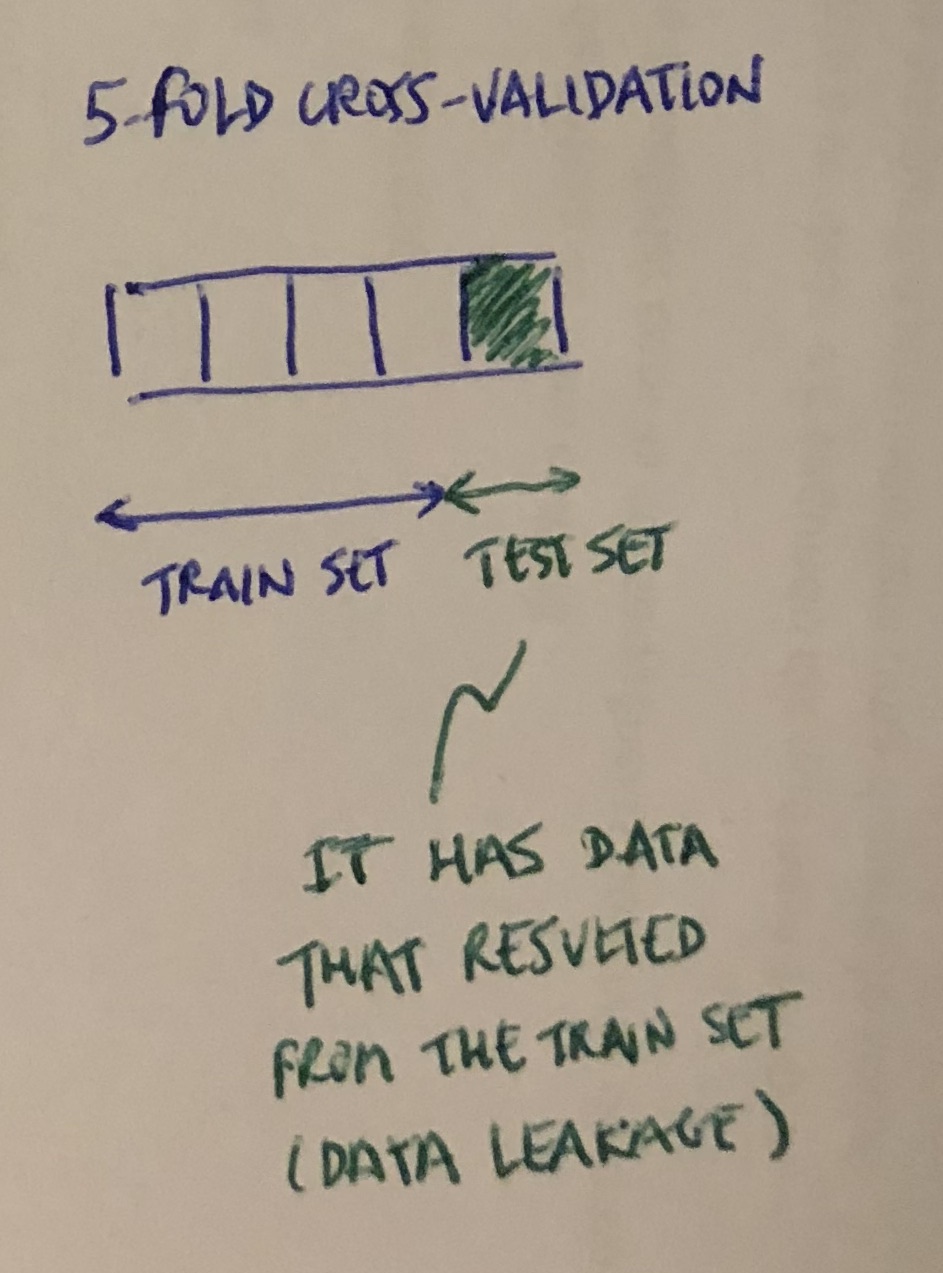 5-FOLD CROSS-VALIDATION
TRAIN SET TEST SET
IT HAS DATA
THAT RESULTED
FROM THE TRAIN SET
(DATA LEAKAGE)